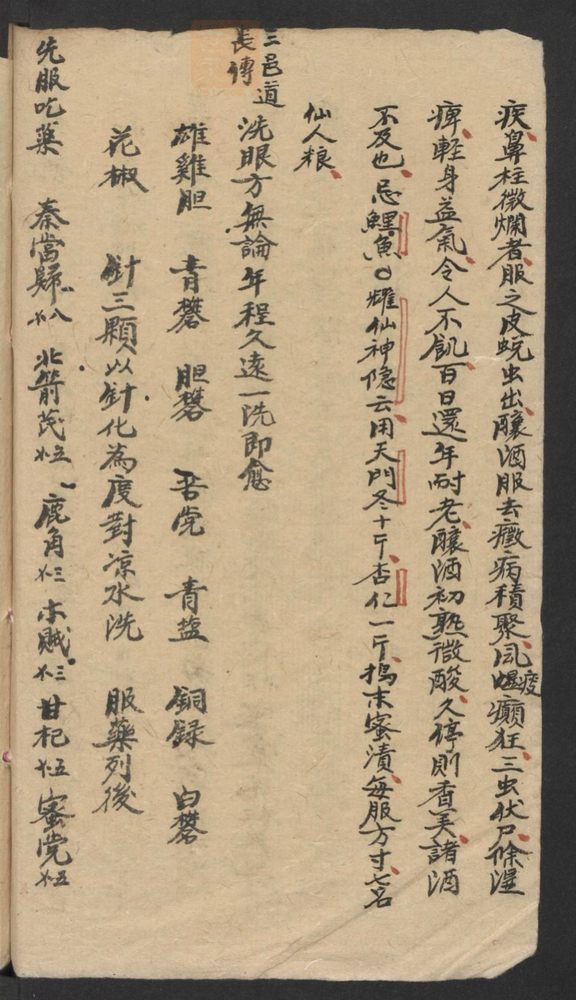 疾鼻柱微爛者服之皮蛻虫出釀酒服去癥病積聚風㷸癲狂三虫伏尸除濕
痺輕身益氣令人不飢百日還年耐老釀酒初熟微酸久停則香美諸酒
不及也忌鯉魚〇㷸仙神隐云用天門冬十斤杏仁一斤搗末蜜漬每服方寸七名
仙人粮
三邑道長傳
洗眼方無論年程久遠一洗即愈
雄雞胆 青礬 胆礬 吾党 青盐 銅録 白礬
花椒 針三顆以針化為度對凉水洗 服藥列後
先服吃藥 秦當歸 北箭芪 鹿角 木賊 甘杞 蜜党